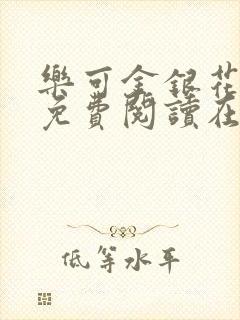 樂可金銀花
免費閱讀在
低等水平